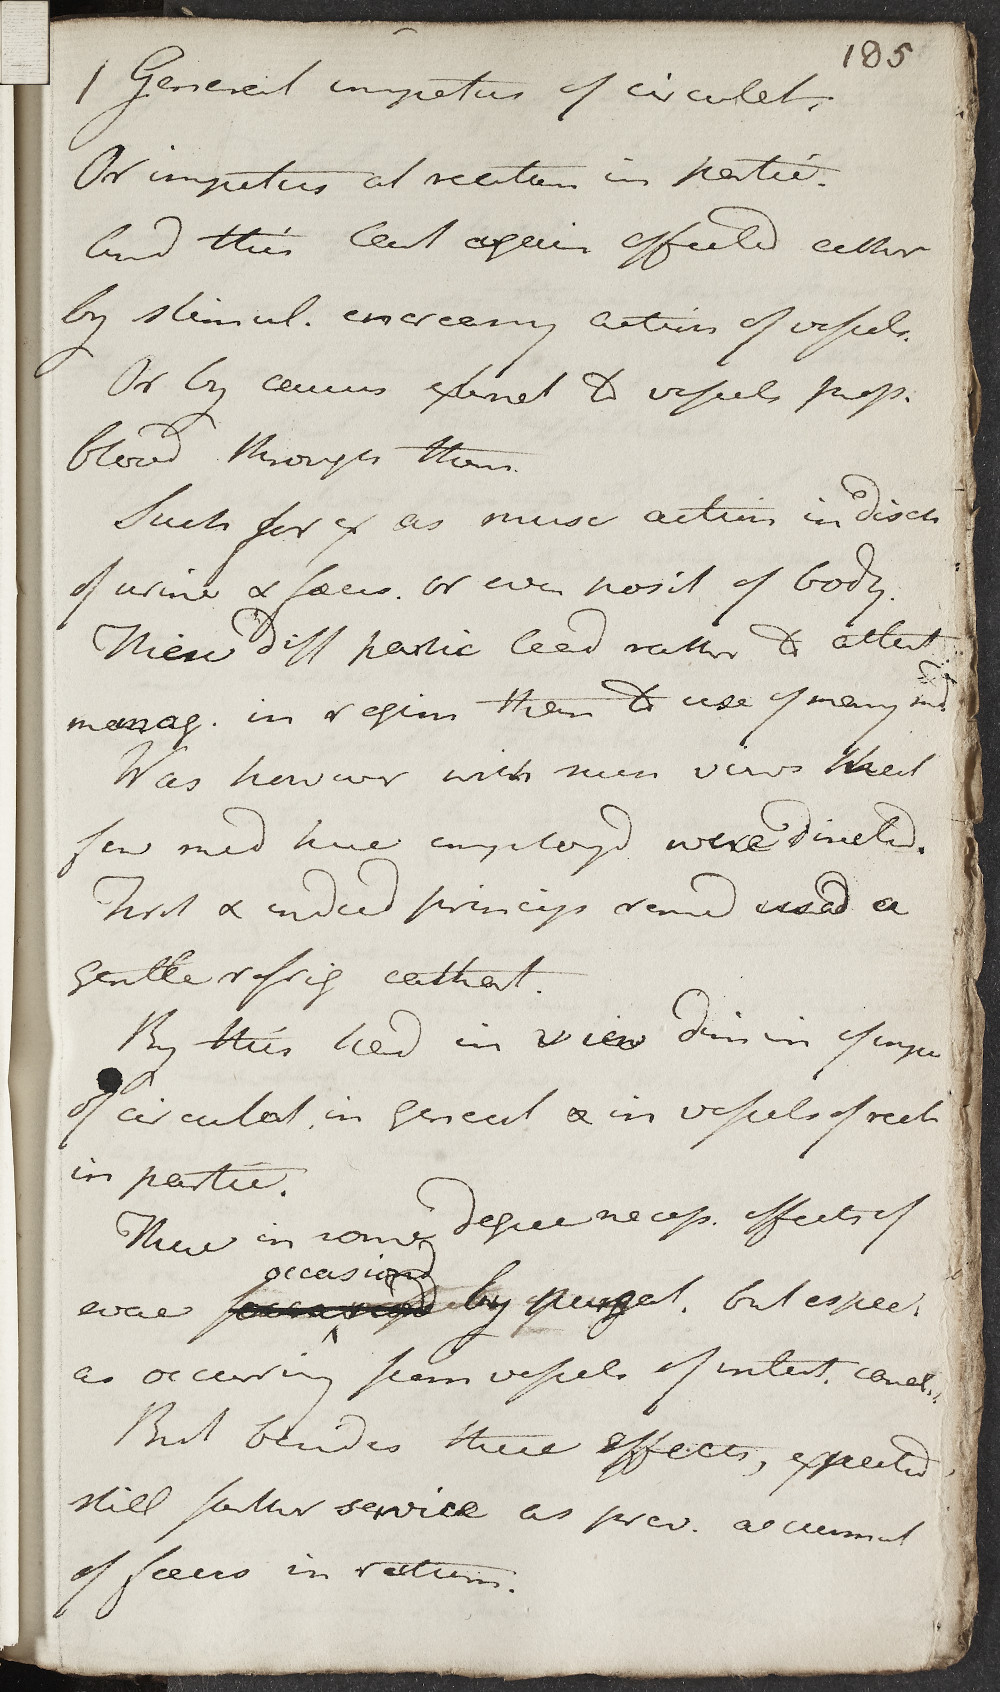 185
1 General impetus of circulat.
Or impetus at rectum in partic.
And this last again effected either
by stimul. encreasing action of vessels.
Or by causes external to vessels prop.
blood through them.
Such for ex as musc action in disch
of urine & fæces. or even posit of body.
These diff partic lead rather to attent
manag. in regim than to use of many med
Was however with such views that
few med here employd were directed.
First & indeed princip remed used a
gentle refrig cathart.
By this had in view dimin of impe
of circulat. in general & in vessels of rect
in partic.
These in some degree necess. effects of
occasiond
evac by purgat. but espec.
as occurring from vessels of intest. canal.
But besides these effects, expected
still farther service as prev. accumul
of fæces in rectum.